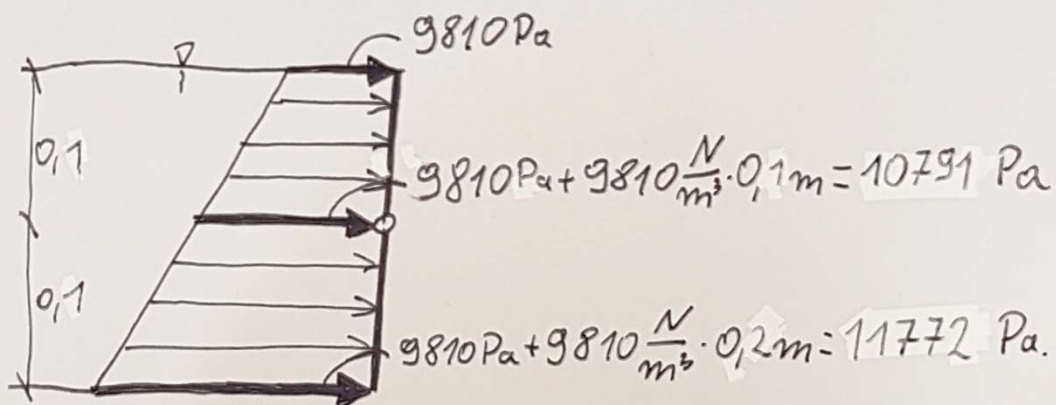 9810 Pa
0,1
9810 Pa + 9810 N/m³ · 0,1m = 10791 Pa
0,1
9810 Pa + 9810 N/m³ · 0,2m = 11772 Pa.